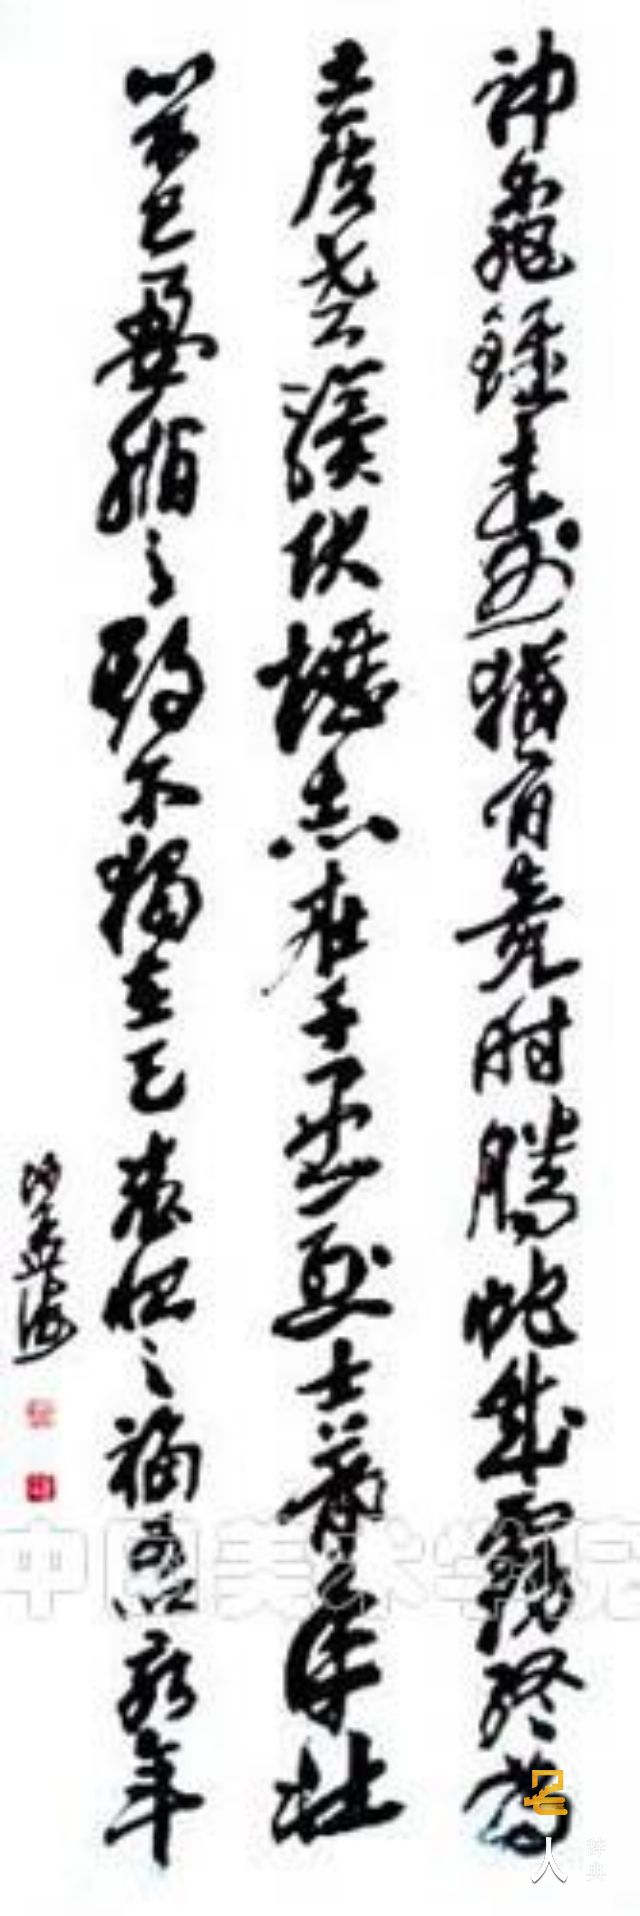 神龜雖壽猶有竟时騰蛇乘霧終為
土灰老驥伏櫪志在千里烈士暮年壯
心不已盈縮之期不獨在天養怡之福可以永年
沙孟海
中国美术学院
名人
辞典